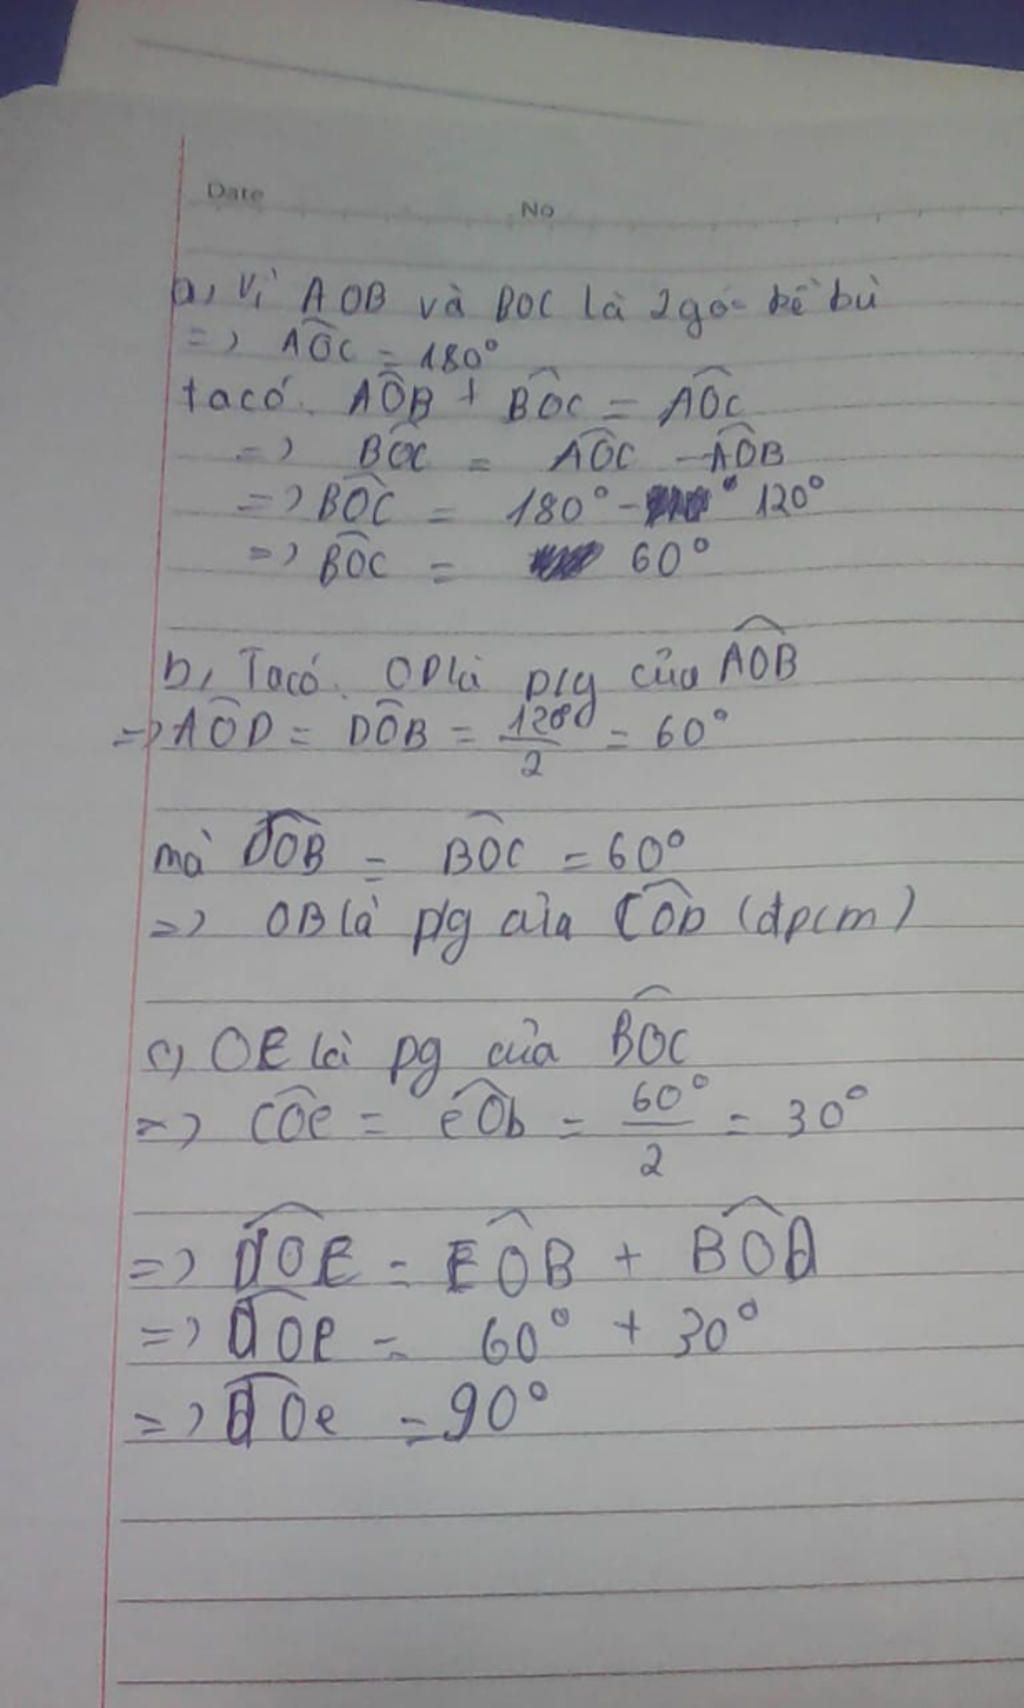 Date
No
a, Vì AOB và BOC là 2 góc kề bù
=> AÔC = 180°
ta có. AÔB + BÔC = AÔC
=> BÔC = AÔC - AÔB
=> BÔC = 180° - 120°
=> BÔC = 60°
b, Ta có. OD là p/g của AÔB
=> AÔD = DÔB = 120°/2 = 60°
mà DÔB = BÔC = 60°
=> OB là p/g của CÔD (đpcm)
c, OE là pg của BÔC
=> CÔe = eÔb = 60°/2 = 30°
=> DÔE = EÔB + BÔD
=> DÔe = 60° + 30°
=> DÔe = 90°